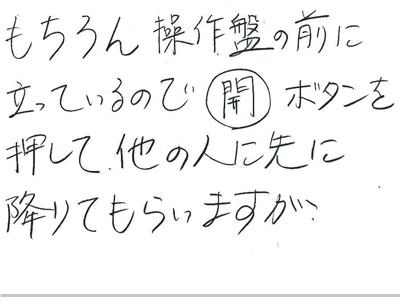 もちろん操作盤の前に
立っているので 開 ボタンを
押して、他の人に先に
降りてもらいますが、